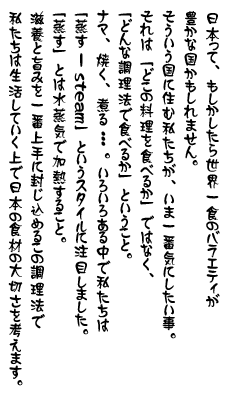 日本って、もしかしたら世界一食のバラエティが
豊かな国かもしれません。
そういう国に住む私たちが、いま一番気にしたい事。
それは「どこの料理を食べるか」ではなく、
「どんな調理法で食べるか」ということ。
ナマ、焼く、煮る…。いろいろある中で私たちは
「蒸すーsteam」というスタイルに注目しました。
「蒸す」とは水蒸気で加熱すること。
滋養と旨みを一番上手に封じ込めるこの調理法で
私たちは生活していく上で日本の食材の大切さを考えます。